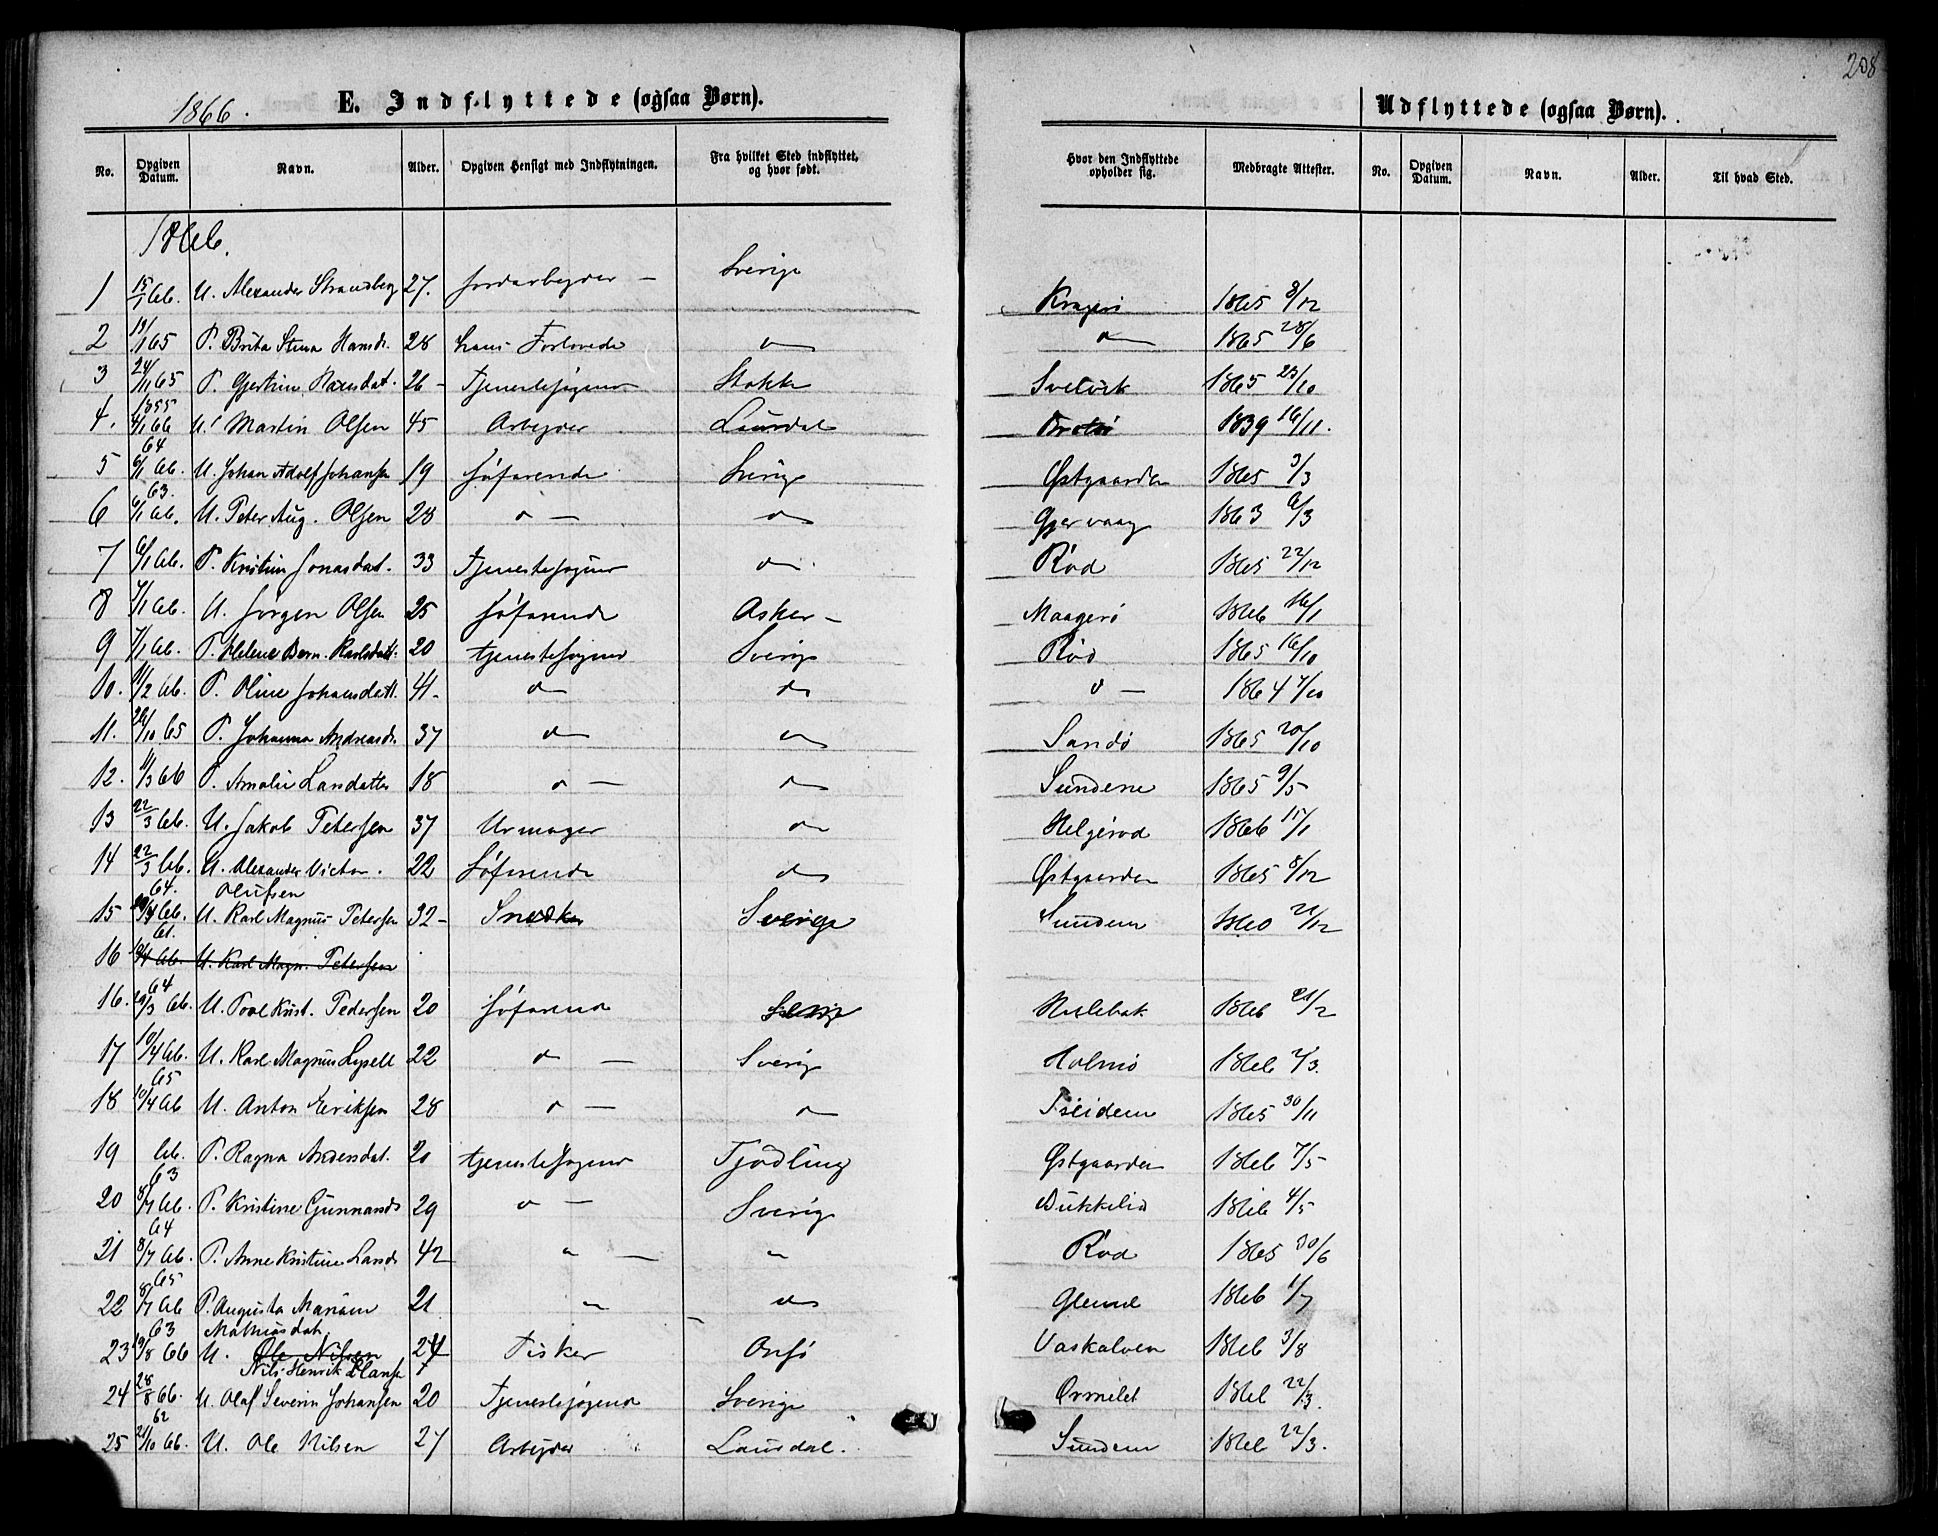 208
1866.
E. Indflyttede (ogsaa Børn).
Udflyttede (ogsaa Børn).
No. Opgiven Datum. Navn. Alder. Opgiven Hensigt med Indflytningen. Fra hvilket Sted indflyttet, og hvor født. Hvor den Indflyttede opholder sig. Medbragte Attester. No. Opgiven Datum. Navn. Alder. Til hvad Sted.
1866.
1 15/1 66. U. Alexander Strandberg 27. Jordarbeyder — Sverige Kragerö 1865 8/12
2 /1 65 P. Brita Stina Hansd. 28 hans Forlovede do 1865 28/6
3 24/11 65 P. Gjertine Hansdat. 26 - Tjenestesøgend Stokke Svelvik 1865 23/10
1855
4. 4/1 66 U. Martin Olsen 45 Arbeyder Laurdal 1839 16/11.
64
5 6/1 66. U. Johan Adolf Johansen 19 Søfarende Sverige Østgaarden 1865 3/3
63.
6 6/1 66. U. Peter Aug. Olsen 28 d — do Gjervaag 1863 6/3
7 6/1 66. P. Kristine Jonasdat. 33 Tjenestesøgend do Rød 1865 22/12
8 7/1 66. U. Jørgen Olsen 25 Søfarende Asker — Maagerö 1866 16/1
9 7/1 66. P. Helene Bern. Karlsdatt. 20 tjenestesøgend Sverige Rød 1865 16/10
10. 11/2 66. P. Oline Johansdatt. 41 - do do d — 1864 7/10
11. 20/10 65 P. Johanna Andreasd. 37 do do Sandö 1865 20/10
12. 11/3 66 P. Amalie Larsdatter 18 d — do Sundene 1865 9/5
13 22/3 66. U. Jakob Petersen 37 Urmager do Helgerød 1866 15/1
14 22/3 66. U. Alexander Victor. 22 Søfarende do Østgaarden 1865 8/12
64. Olufsen
15 66. U. Karl Magnus Petersen 32 - Snedker Sverige Sundene 1860 21/12
61.
16 10/4 66. U. Karl Magn. Petersen
64
16. 20/3 66. U. Poul Krist. Pedersen 20 Søfarend 1866 21/2
17 10/4 66. U. Karl Magnus Lysell 22 d — Sverige Holmö 1866 2/3.
65
18 10/4 66 U. Anton Eriksen 28 d — do 1865 30/11
19 66. P. Ragna Andersdat. 20 tjenestesøgend Tjødling Østgaarden 1866 7/5
63
20 8/7 66. P. Kristine Gunnarsd. 29 d — Sverige Dukkelid 1866 4/5
64
21 8/7 66. P. Anne Kristine Larsd. 42 " — " Rød 1865 30/6
65
22 8/7 66 P. Augusta Mariane 21. " do 1866 1/7
63 Mathiasdat.
23 19/8 66 U. Ole Nilsen 24 Fisker Onsö Vaskalven 1866 3/8
Nils Henrik Hansen
24 28/8 66. U. Olaf Severin Johansen 20 Tjenestesøgend Sverige Ormelet 1866 22/3.
62
25 21/10 66. U. Ole Nilsen 27 Arbeyder Laurdal. Sundene 1866 22/3.